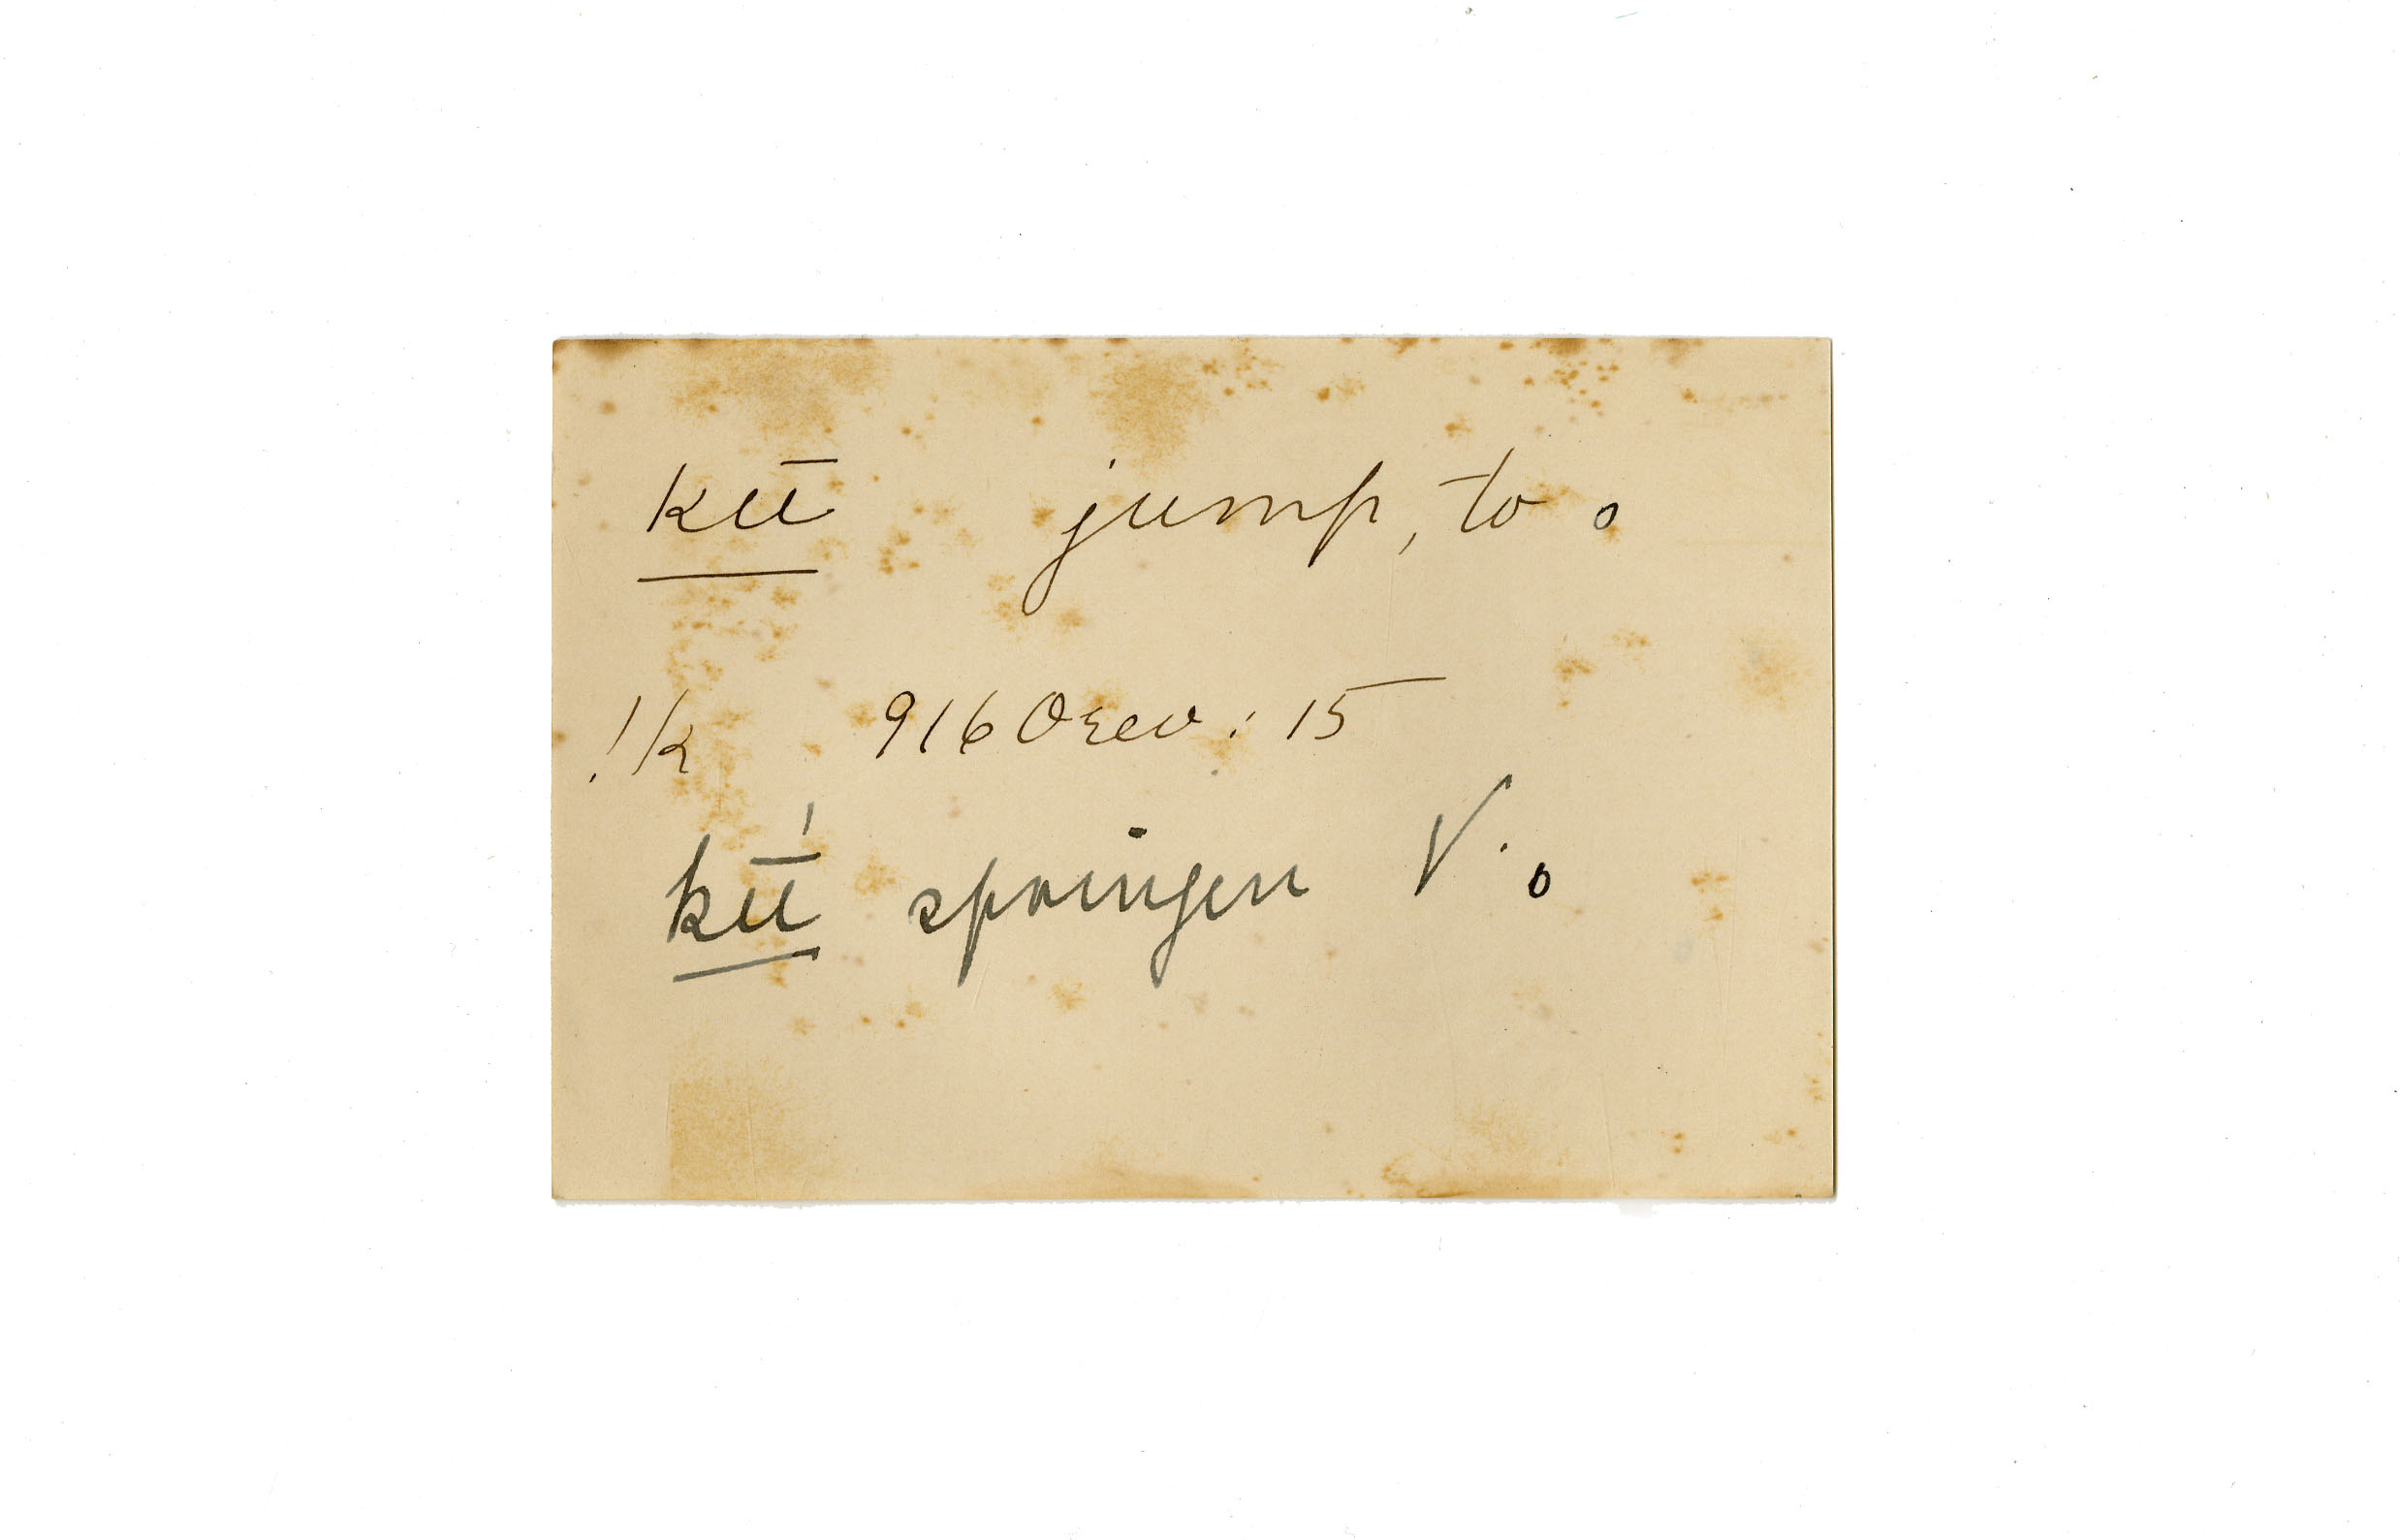 kū jump, to.
!k 9160rev: 15
kū́ springen V.